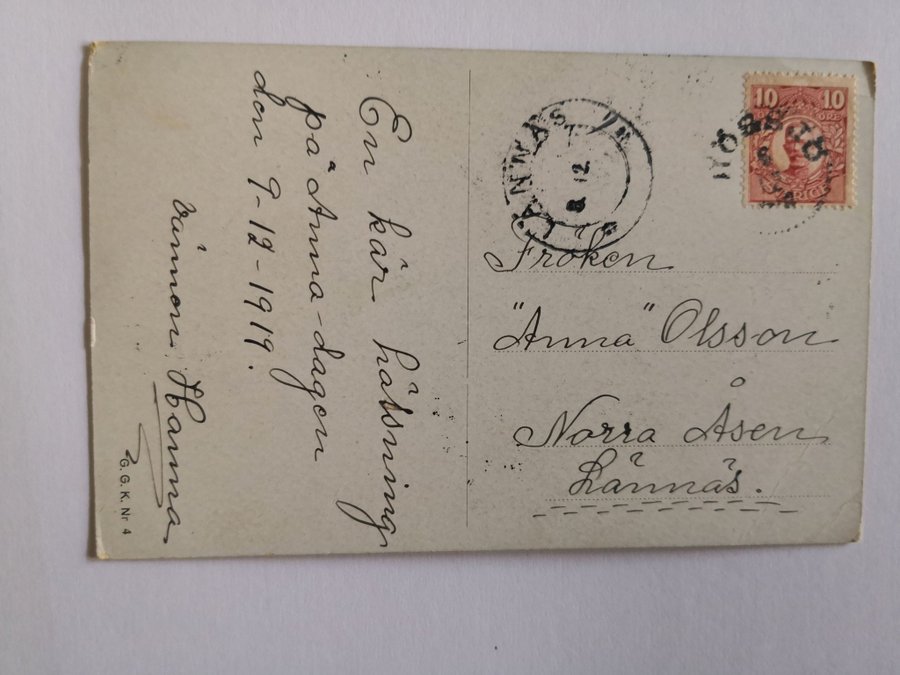 En kär hälsning
på Anna-dagen
den 9-12-1919.
vännen Hanna
G. G. K. Nr 4
LÄNNÄS
8 12
10 10
ÖRE
SVERIGE
Fröken
"Anna" Olsson
Norra Åsen
Lännäs.